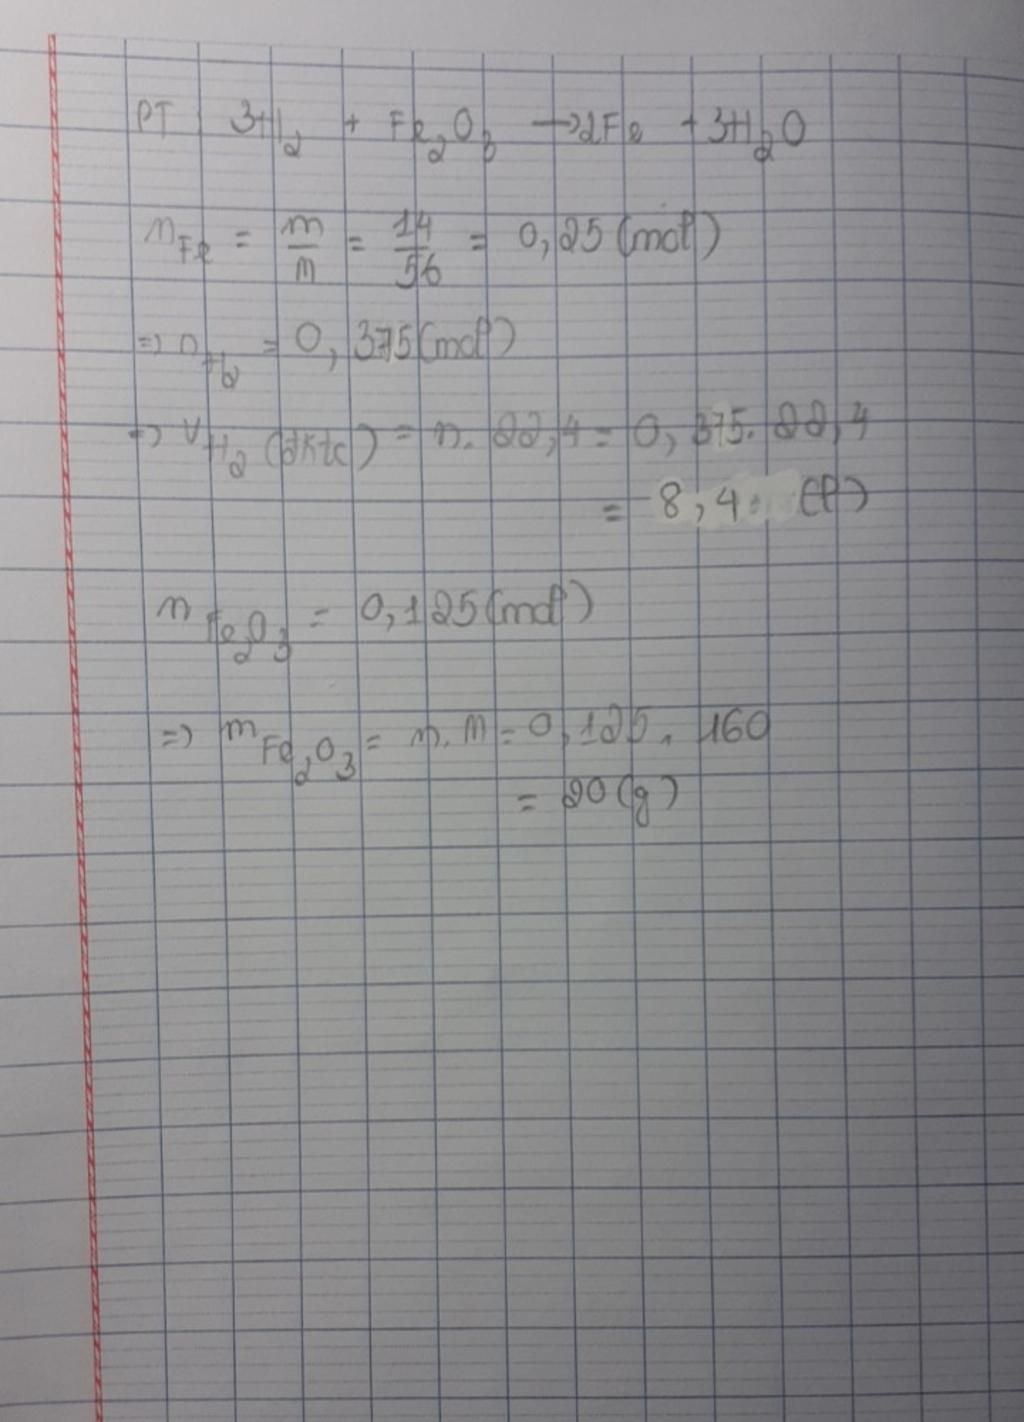 PT 3H₂ + Fe₂O₃ → 2Fe + 3H₂O
n_Fe = m/M = 14/56 = 0,25 (mol)
=> n_H₂ = 0,375 (mol)
=> V_H₂ (đktc) = n. 22,4 = 0,375. 22,4
= 8,4 (l)
n_Fe₂O₃ = 0,125 (mol)
=> m_Fe₂O₃ = n. M = 0,125. 160
= 20 (g)